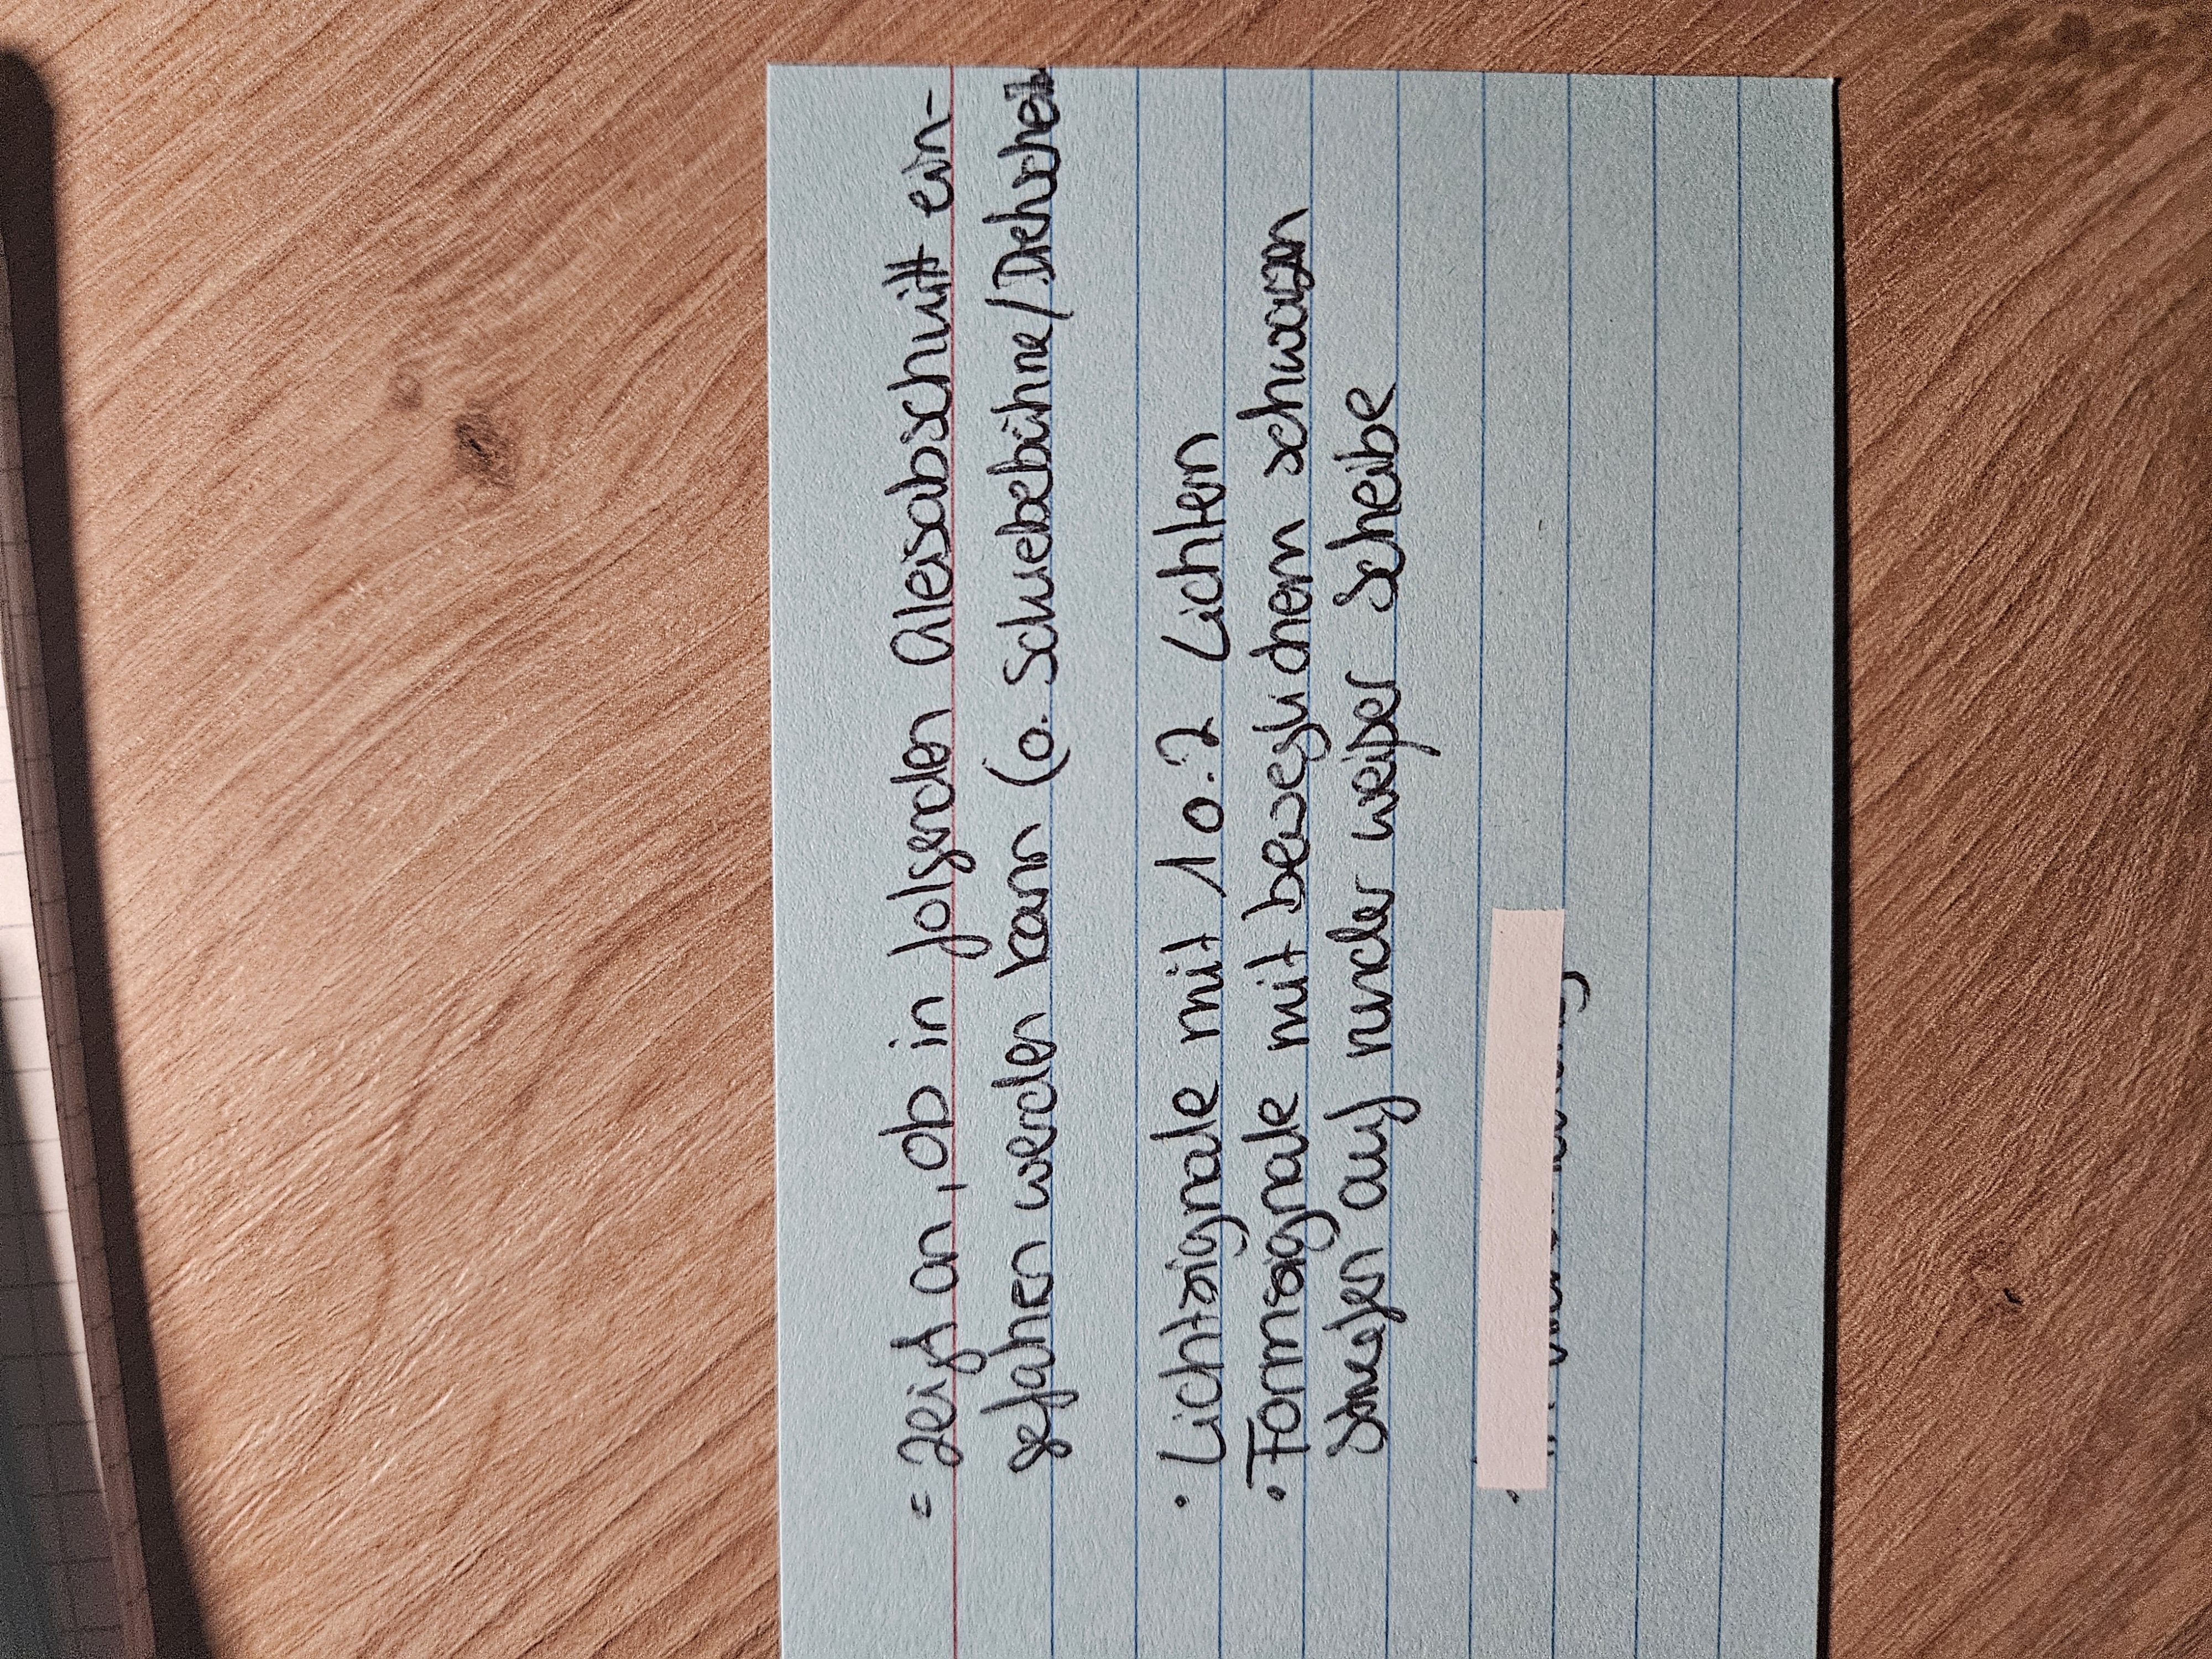 = zeigt an, ob in folgenden Gleisabschnitt ein-
gefahren werden kann (o. Schiebebühne/Drehscheib
• Lichtsignale mit 1 o. 2 Lichtern
• Formsignale mit beweglichem schwarzen
Streifen auf runder weißer Scheibe
•